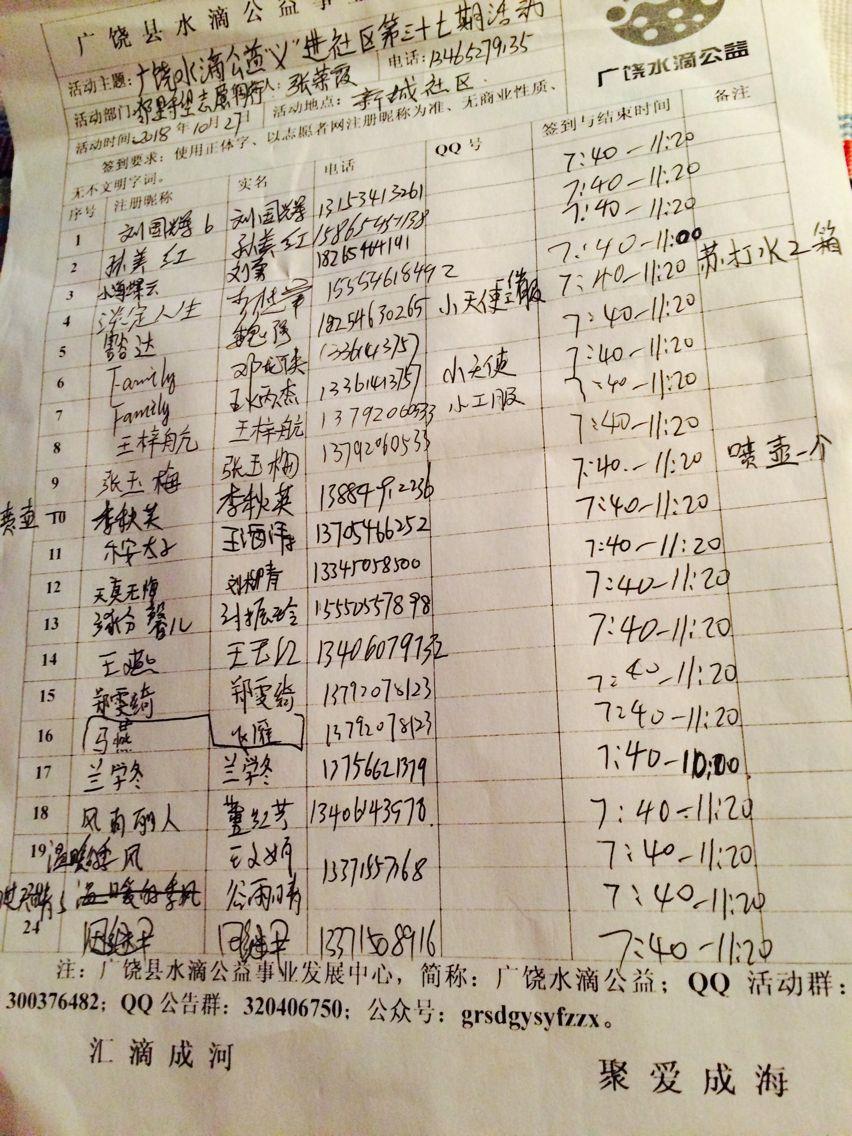 广饶县水滴公益事
广饶水滴公益
活动主题:广饶水滴公益"义"进社区第三十七期活动 电话:13465279135
活动部门: 志愿 人:张荣霞 活动地点:新城社区
活动时间:2018年10月27日
签到要求:使用正体字、以志愿者网注册昵称为准、无商业性质、
无不文明字词。
序号 注册昵称 实名 电话 QQ 号 签到与结束时间 备注
1 刘国辉6 刘国辉 13153413261 7:40-11:20
2 孙美红 孙美红 7:40-11:20
3 刘勇 18265464191 7:40-11:20
4 淡定人生 7:40-11:00
5 豁达 魏强 18254630265 小天使 7:40-11:20 苏打水2箱
6 Family 13361413757 7:40-11:20
7 Family 13361413757 小天使 7:40-11:20
8 王梓航 王梓航 13792060533 小工服 7:40-11:20
9 张玉梅 张玉梅 13792060533 7:40-11:20
10 李秋英 李秋英 13884912236 7:40-11:20 喷壶一个
11 13705466252 7:40-11:20
12 天真无悔 刘柳青 13345058500 7:40-11:20
13 馨儿 15550557898 7:40-11:20
14 王燕 13406079732 7:40-11:20
15 郑雯绮 郑雯绮 13792078123 7:40-11:20
16 马燕 飞雁 13792078123 7:40-11:20
17 兰学冬 兰学冬 13756621379 7:40-10:00
18 风雨丽人 董红芳 13406143578 7:40-11:20
19 温暖的季风 13371557168 7:40-11:20
谷雨晴 7:40-11:20
24 13371508916 7:40-11:20
注:广饶县水滴公益事业发展中心,简称:广饶水滴公益;QQ 活动群:
300376482;QQ 公告群:320406750;公众号:grsdgysyfzzx。
汇滴成河 聚爱成海